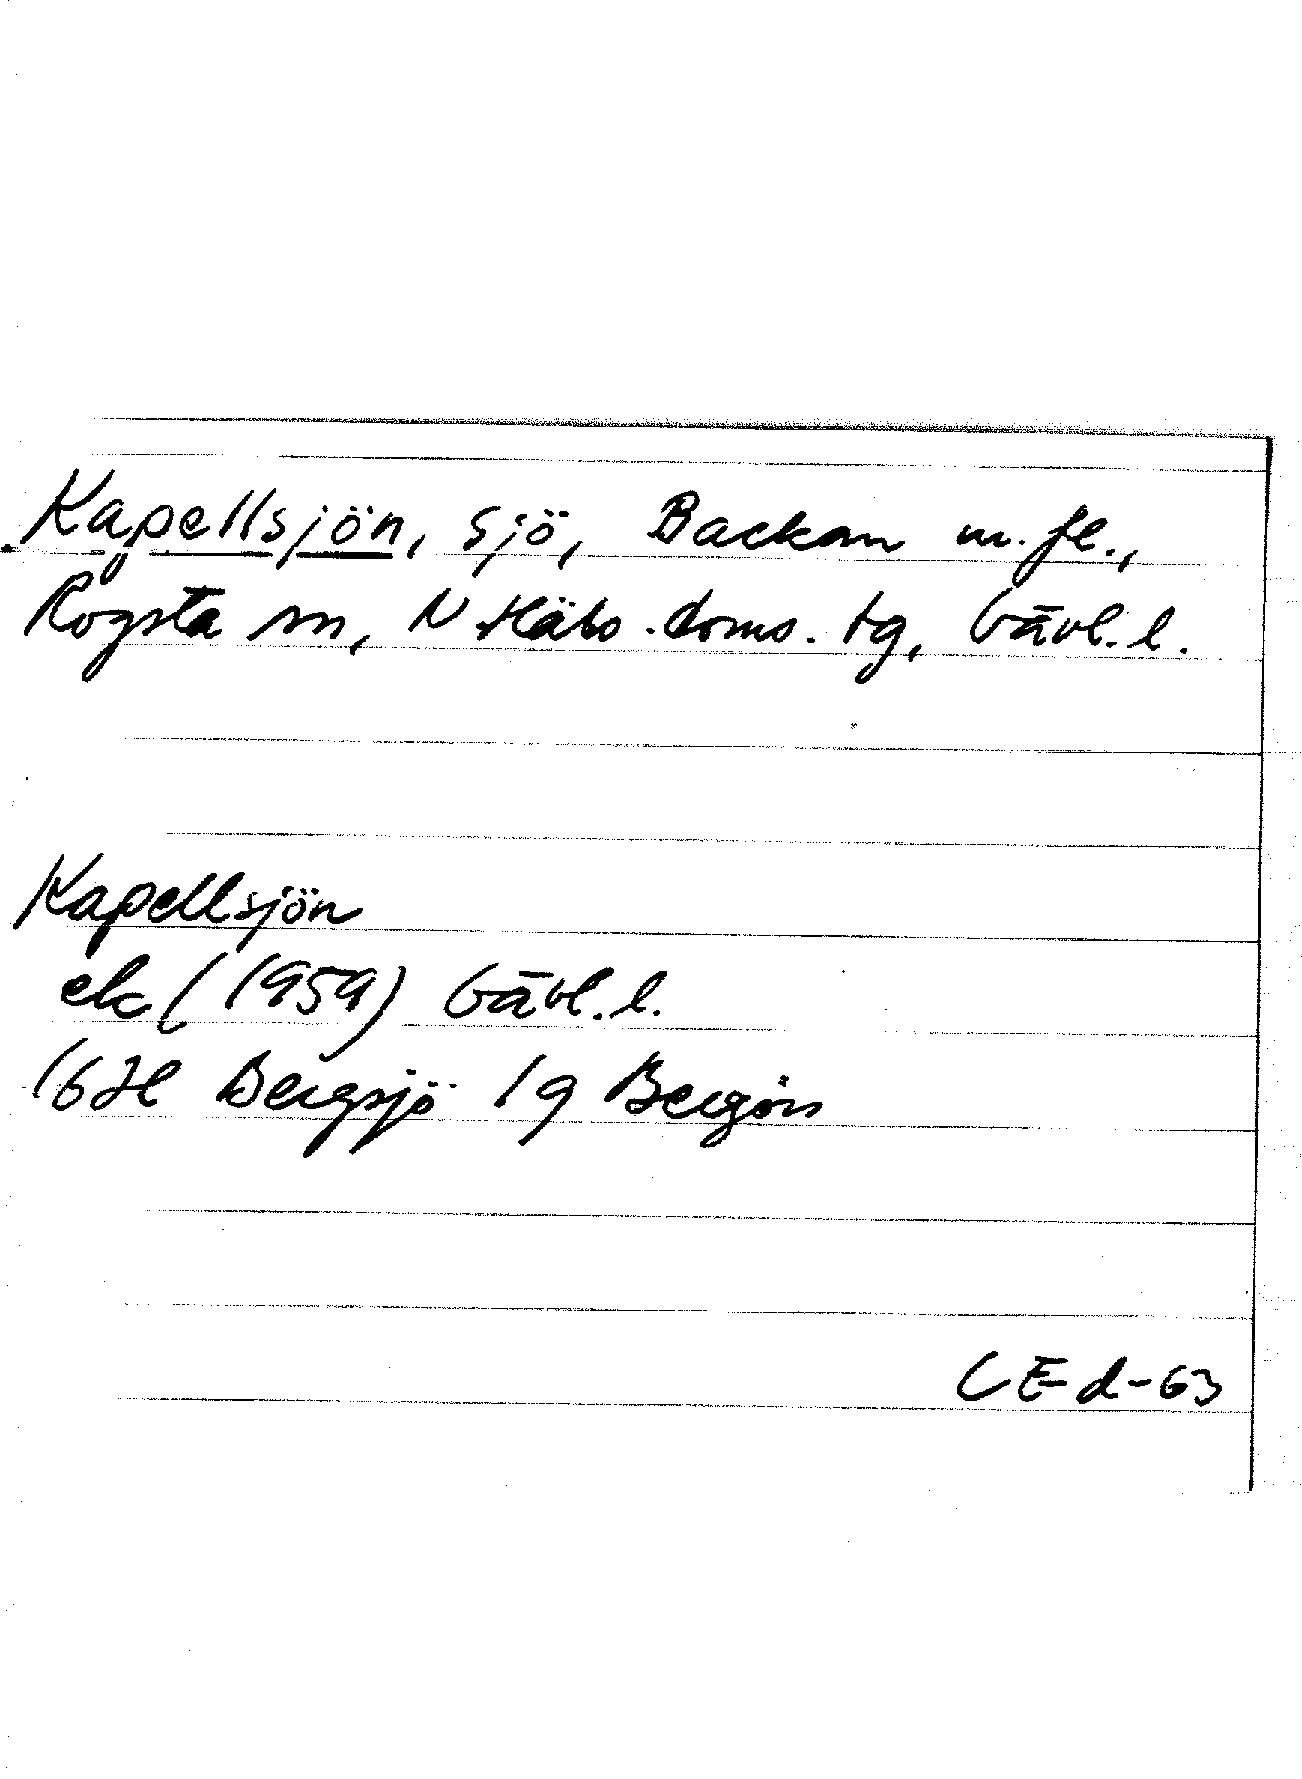 Kapellsjön, sjö, Backan m.fl.,
Rogsta sn, N Häls. doms. tg, Gävl. l.
Kapellsjön
ek (1959) Gävl. l.
16H Bergsjö 1g Bergön
CE d-63